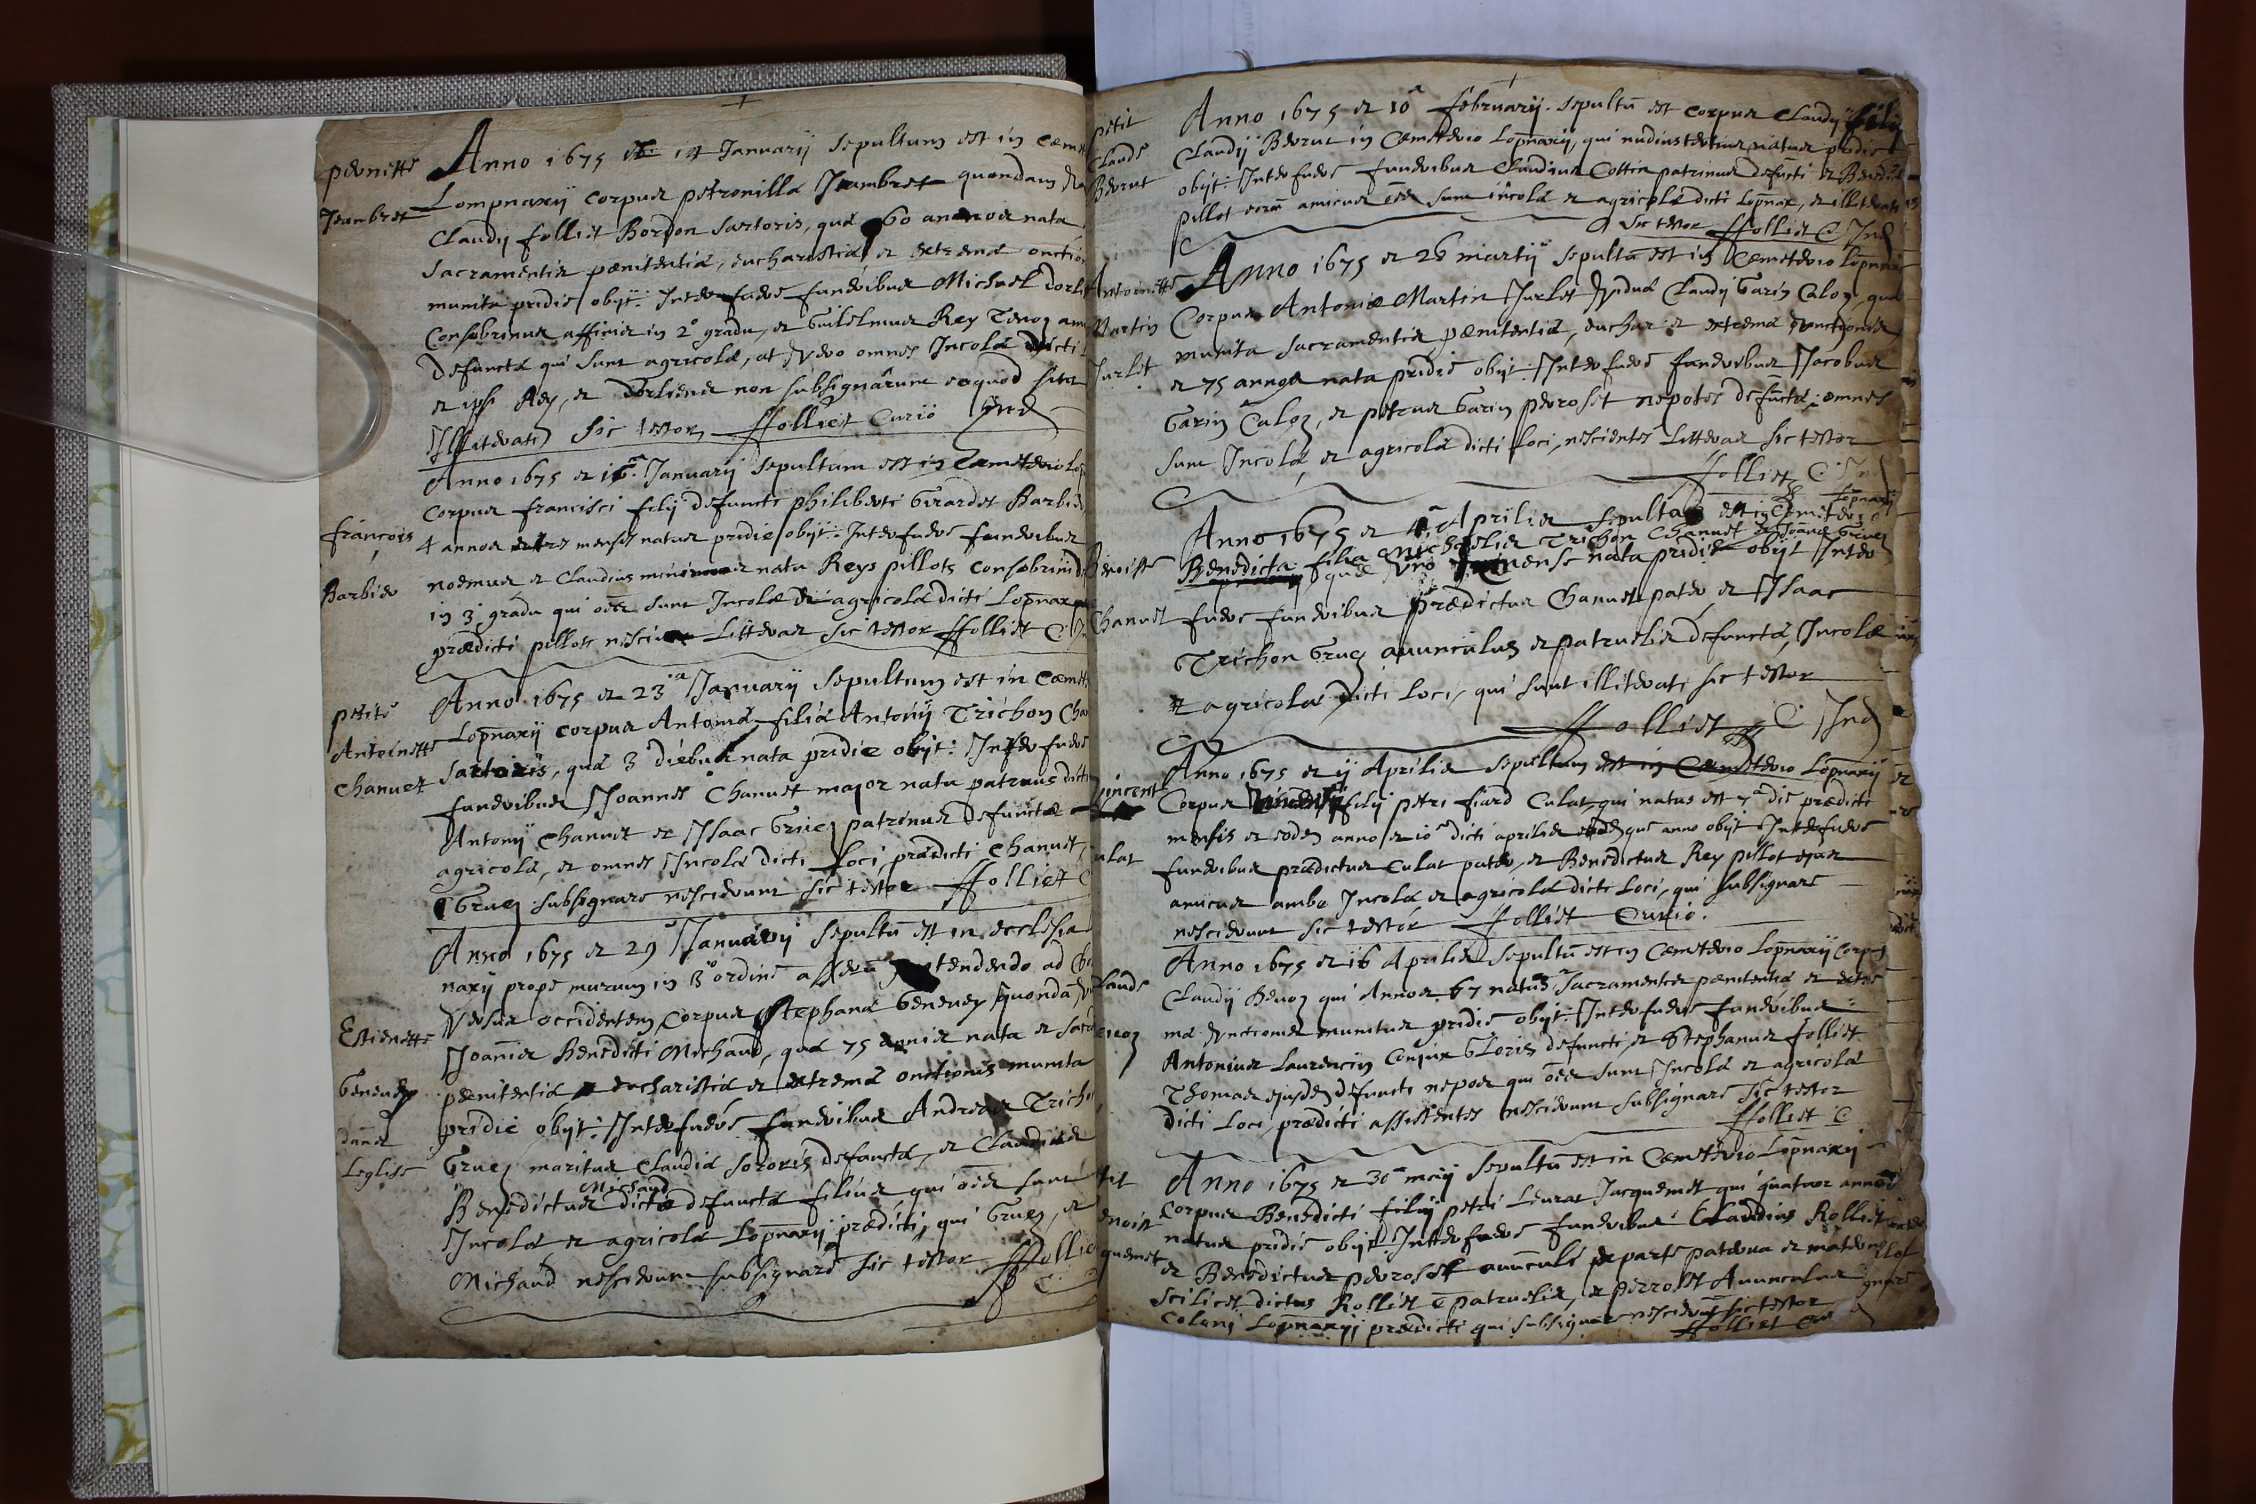 pernette
Jeambret
Anno 1675 et 14 Januarij sepultum est in cæm
Lompnaxij corpus petronillæ Jeambret quondam
Claudij folliet Bordon sartoris, quæ 60 annos nata
Sacramentis pænitentiæ, eucharistiæ et extremæ onctio
munita pridie obijt: Interfuere funeribus Michael Dorli
Consobrinus affinis in 2º gradu, et Guilelmus Rey Tenoz am
Defunctæ qui sunt agricolæ, at vero omnes Incolæ dicti
et ipsi Rey, et Dorlienes non subsignârunt eoquod sint
Illiterati sic testor ffolliet Curiô Ind
françois
Barbier
Anno 1675 et 16ª Januarij sepultum est in Cæmeterio Lop
corpus francisci filij defuncti philiberti Girardet Barbier
4 annos et tres menses natus pridie obijt: Interfuere funeribus
noemus et Claudius minimus natu Reys pillots consobrini d
in 3º gradu qui oēs sunt Incolæ et agricolæ dicti Lop̄nax
prædicti pillots nesciunt Litteras sic testor ffolliet C
petite
Antoinette
Chanuet
Anno 1675 et 23ª Januarij sepultum est in Cæmet
Lop̄naxij corpus Antoniæ filiæ Antonij Trichon Cha
sartoris, quæ 3 diebus nata pridie obijt: Interfuere
funeribus Joannes Chanuet major natu patruus dicti
Antonij Chanuet et Isaac Gruez patrinus defunctæ
agricolæ, et omnes Incolæ dicti Loci prædicti Chanuet,
Gruez subsignare nescierunt sic testor ffolliet C
Estienette
Geneuez
dans
Leglise
Anno 1675 et 29ª Januarij sepultū est in ecclesia
naxij prope murum in 3º ordine tendendo ad
Versus occidentem Corpus Stephanæ Geneuez quondā
Joannis Benedicti Michaud, quæ 75 annis nata et sacr
pænitentiæ eucharistiæ et extremæ onctionis munita
pridie obijt: Interfuere funeribus Andreas Tricho
Gruez maritus Claudiæ sororis defunctæ, et Claudius
Benedictus Michaud dictæ defunctæ filius qui oēs sunt
Incolæ et agricolæ Lop̄naxij prædicti, qui Gruez, et
Michaud nescierunt subsignare sic testor ffolliet
C
petit
Claude
Beurut
Anno 1675 et 10ª februarij. sepultū est corpus Claudij filij
Claudij Beurut in Cæmeterio Lop̄naxij, qui nudiustertius natus pridie
obijt: Interfuere funeribus Claudius Cottin patrinus defūcti et Benedict
pillot eorū amicus oēs sunt incolæ et agricolæ dicti Lop̄nax, et illiterati
Sic testor ffolliet C Ind
Antoinette
Martin
Jurlet
Anno 1675 et 26 martij sepultū est in Cæmeterio Lop̄nax
Corpus Antoniæ Martin Jurlet Vidua Claudij Garin Caloz, quæ
munita sacramentis pænitentiæ, euchar: et extremæ vnctionis
et 75 annos nata pridie obijt: Interfuere funeribus Jacobus
Garin Caloz, et petrus Garin perroset nepotes defūctæ; omnes
sunt Incolæ et agricolæ dicti Loci, nescientes Litteras sic testor
ffolliet C Ind
Benoitte
Chanuet
Anno 1675 et 4ª Aprilis sepulta est in Cæmeterio Lop̄naxij
Benedicta filia Michælis Trichon Chanuet et Joannæ Gruez
quæ vno mense nata pridie obijt Inter
fuere funeribus prædictus Chanuet pater, et Isaac
Trichon Gruez auunculus et patruelis defunctæ, Incolæ
et agricolæ dicti Loci, qui sunt illiterati sic testor
ffolliet C Ind
vincent
culat
Anno 1675 et ij Aprilis sepultum est in Cæmeterio Lop̄naxij
Corpus Vincentij filij petri fiard Culat, qui natus est 7ª die prædicti
mensis et eodem anno et 10ª dicti aprilis eodemque anno obijt Interfuere
funeribus prædictus Culat pater, et Benedictus Rey pillot ejus
amicus ambo Incolæ et agricolæ dicti Loci, qui subsignare
nescierunt sic testor ffolliet Curiô.
Claude
Anno 1675 et 16 Aprilis sepultū est in Cæmeterio Lop̄naxij Corpus
Claudij Benoz qui Annos 67 natus, Sacramentis pænitentiæ et extre
mæ vnctionis munitus pridie obijt: Interfuere funeribus
Antonius Laurencin Conjux Gloriæ defuncti, et Stephanus folliet
Thomas ejusdem defuncti nepos qui oēs sunt Incolæ et agricolæ
dicti Loci, prædicti assistentes nescierunt subsignare sic testor
ffolliet C
petit
benoist
Jaquemet
Anno 1675 et 30ª maij sepultū est in Cæmeterio Lop̄naxij
Corpus Benedicti filij petri Leurat Jacquemet qui quatuor annos
natus pridie obijt Interfuere funeribus Claudius Rolliet
et Benedictus perrosset auunculi ex parte paterna et materna
Scilicet dictus Rolliet ē patruelis, et perrosset Auunculus
Coloni Lop̄naxij prædicti qui subsignare nescierunt sic testor
ffolliet Curiô